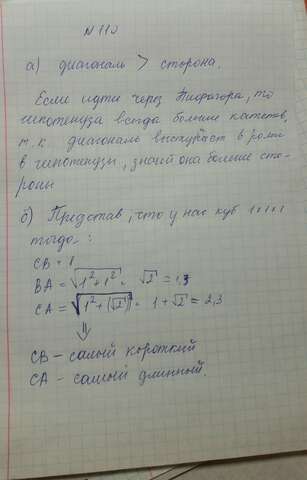 N 110
а) диагональ > сторона.
Если идти через Пифагора, то
гипотенуза всегда больше катетов,
т.к. диагональ выступает в роли
в гипотенузы, значит она больше сто-
роны
б) Представ, что у нас куб 1×1×1
тогда:
CB = 1
BA = √1²+1² = √2 = 1,3
CA = √1²+(√2)² = 1+√2 = 2,3
⇓
CB – самый короткий
CA – самый длинный.